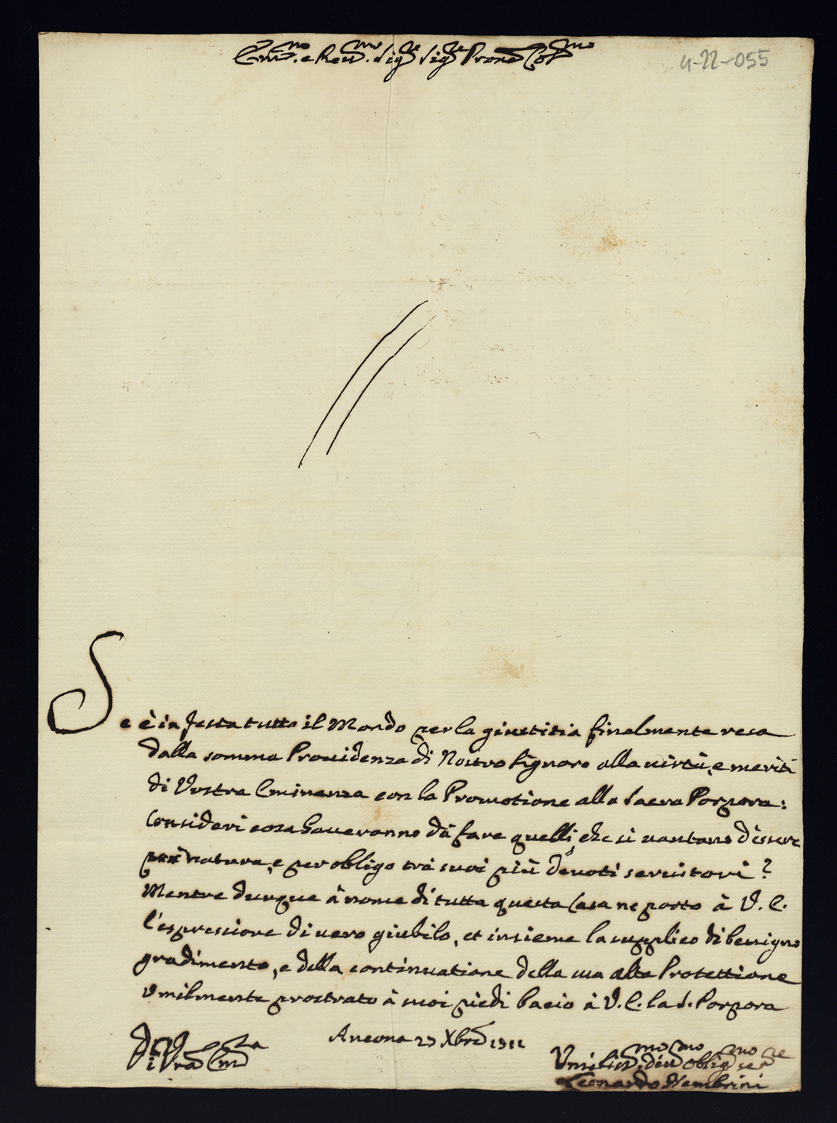 Em.mo e Reu.mo Sig.re Sig.re Prone Col.mo
4-22-055
Se è in festa tutto il Mondo per la giustitia finalmente resa
dalla somma Prouidenza di Nostro Signore alla uirtù, e meriti
di Vostra Eminenza con la Promotione alla Sacra Porpora:
Consideri cosa haueranno dà fare quelli, che si uantano d'essere
natura, e per obligo trà suoi più deuoti seruitori?
Mentre dunque à nome di tutta questa Casa ne porto à V. E.
l'espressione di uero giubilo, et insieme la supplico di benigno
gradimento, e della continuatione della sua alta Protettione
Vmilmente prostrato à suoi piedi bacio à V. E. la S. Porpora
Di V.ra Em.za
Ancona 27 Xbre
Vmiliss.mo diu.mo oblig.mo se.re
Leonardo Nembrini